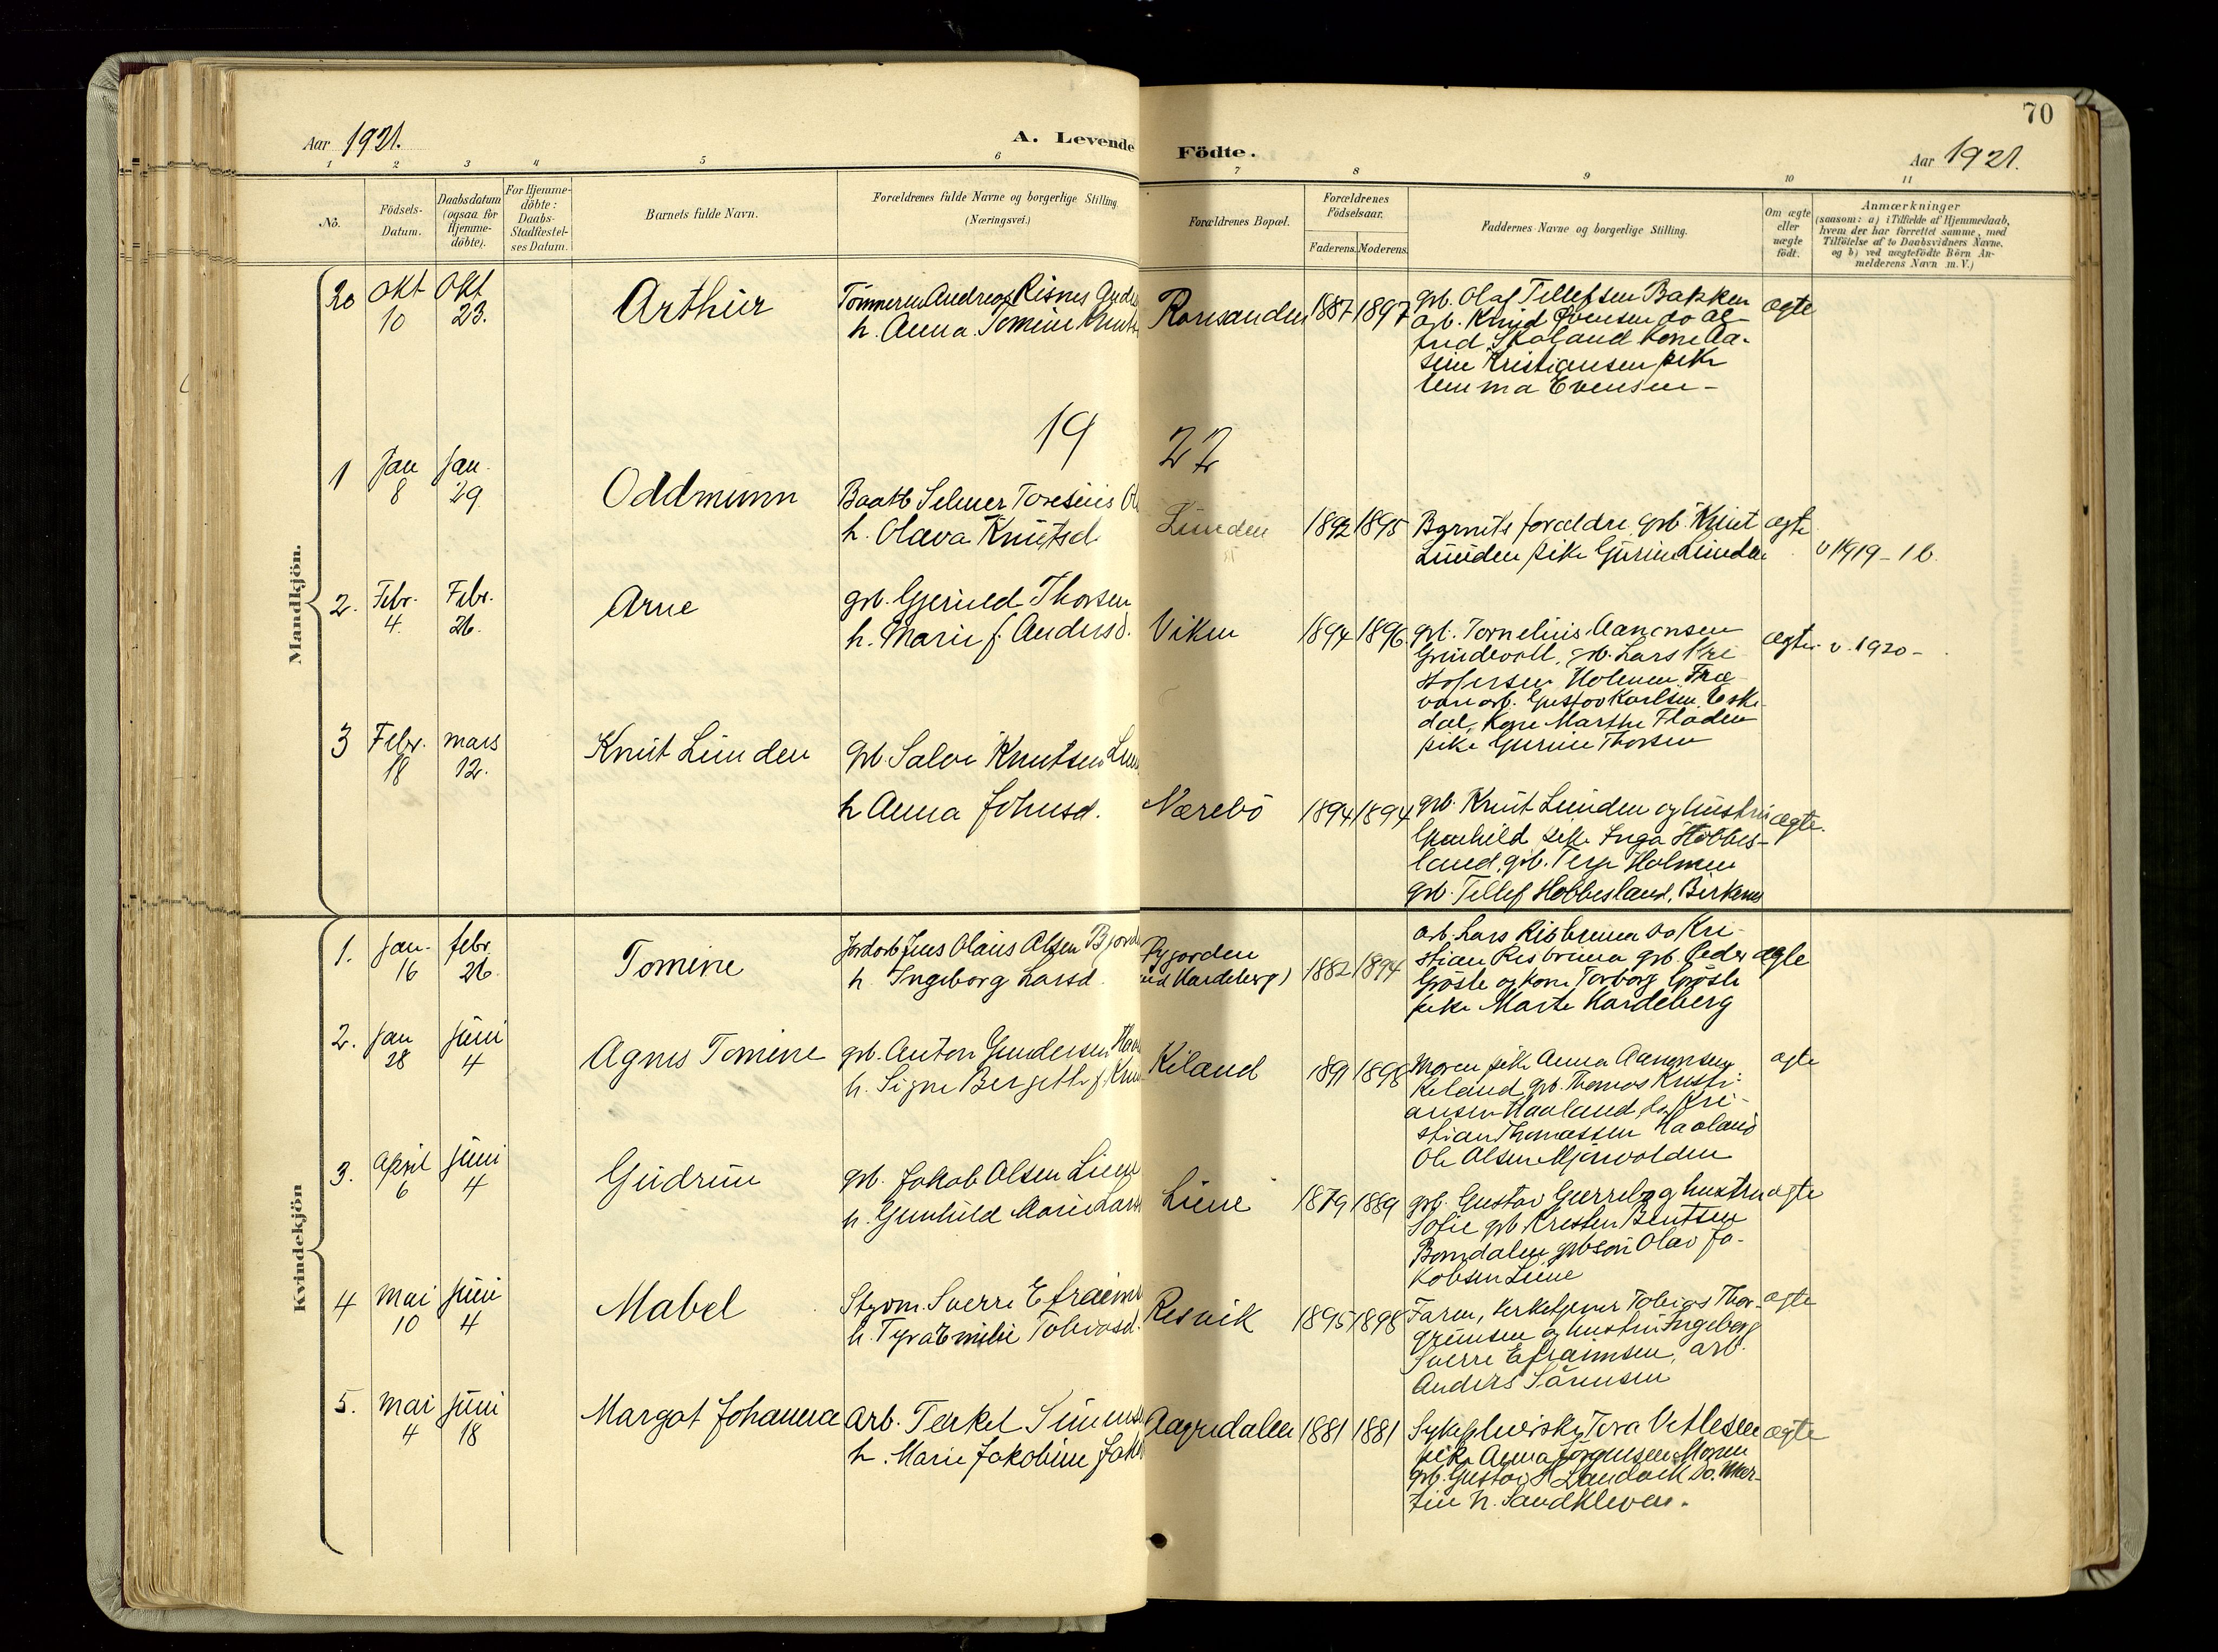 70
Aar 1921.
A. Levende Födte.
Aar 1921.
1 2 3 4 5 6 7 8 9 10 11
No.
Födsels-Datum.
Daabsdatum (ogsaa for Hjemme-döbte).
For Hjemme-döbte: Daabs-Stadfæstel-ses Datum.
Barnets fulde Navn.
Forældrenes fulde Navne og borgerlige Stilling (Næringsvei.)
Forældrenes Bopæl.
Forældrenes Födselsaar.
Faderens. Moderens.
Faddernes Navne og borgerlige Stilling.
Om ægte eller uægte födt.
Anmærkninger
(saasom: a) i Tilfælde af Hjemmedaab,
hvem der har forrettet samme, med
Tilföielse af to Daabsvidners Navne.
og b) ved uægtefödte Börn An-
melderens Navn m. V.)
Mandkjön.
20 Okt 10 Okt 23. Arthur
Tömmerm Andreas Risnes
h. Anna Tomine
1887 1897
grb. Olaf Tellefsen Bakken
arb. Knud Evensen do Al-
fred Skaland kone Aa-
sine Kristiansen pike
Emma Evensen -
ægte
19
22
1 Jan 8 Jan. 29 Oddmunn
Baatb Selmer Toresius
h. Olava Knutsd.
Lunden
1892 1895
Barnets forældre, grb. Knut
Lunden pike Gurine Lunden
ægte
v 1919 - 16.
2. Febr. 4. Febr. 26. Arne
grb. Gjeruld Thorsen
h. Marie f. Andersd.
Viken
1894 1896
grb. Tornelius Aanonsen
Grundevoll, grb. Lars Kri
stofersen Holmen Træ-
varearb. Gustav Karlsen Eske-
dal, Kone Marthe Fladen
pike Gurine Thorsen
ægte
v. 1920 -
3 Febr. 18 mars 12. Knut Lunden
grb. Salve Knutsen
h Anna Johnsd.
Nærebö
1894 1894
grb. Knut Lunden og hustru
Gunhild pike Inga Hobbes-
land, grb. Terje Holmen
grb. Tellef Hobbesland, Birkenes
ægte.
Kvindekjön
1. Jan. 16 febr. 26. Tomine
Jordarb Jens Olaus Olsen
h. Ingeborg Larsd.
1882 1894
arb. Lars Risbruna do Kri-
stian Risbruna grb. Peder
Grösle og kone Torborg Grösle
pike Marte Hardeberg
ægte
2. Jan 28 Juni 4 Agnes Tomine
grb. Anton Gundersen
h. Signe Bergethe f.
Kiland
1891 1898
Moren pike Anna Aanonsen
Kiland, grb. Thomas Kristi-
ansen Haaland, do Kri-
stian Thomassen Haaland
Ole Olsen
ægte
3. April 6 Juni 4 Gudrun
grb. Jakob Olsen
h. Gunhild Marie
Liene
1879 1889
grb. Gustav og hustru
Sofie grb. Kresten Bentsen
grbsön Olav Ja-
kobsen Liene
ægte
4 Mai 10 Juni 4 Mabel
Styrm. Sverre
h. Tyra Emilie Tobiasd.
Resvik
1895 1898
Faren, kirketjener Tobias Thor-
grimsen og hustru Ingeborg
Sverre Efraimsen, arb.
Anders Sörensen
ægte
5. Mai 4 Juni 18 Margot Johanna
Arb. Terkel
h. Marie Jakobine
Aagredalen
1881 1881
Tora Vetlesen
pike Anna Jörgensen Moren
grb. Gustav Landvik do. Mar-
tin N. Sandkleven.
ægte